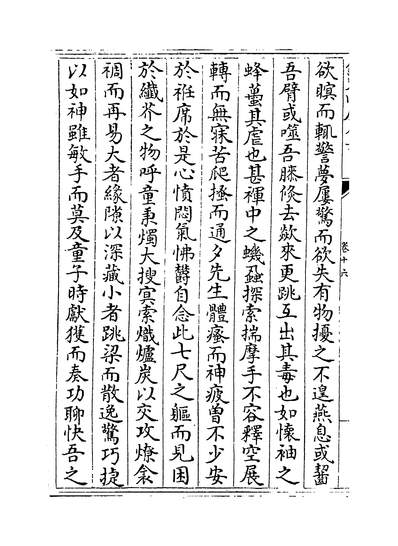 欲瞑而輒警夢屢驚而欲失有物擾之不遑燕息或齧
吾臂或噬吾膝倏去歘來更跳互出其毒也如懷袖之
蜂蠆其虐也甚褌中之蟣蝨探索揣摩手不容釋空展
轉而無寐苦爬搔而通夕先生體癢而神疲曾不少安
於袵席於是心憤悶氣怫欝自念此七尺之軀而見困
於纖芥之物呼童𤎌燭大搜𡩡索熾爐炭以交攻燎衾
裯而再易大者緣隙以深藏小者跳梁而散逸驚巧捷
以如神雖敏手而莫及童子時獻獲而奏功聊快吾之
卷十六